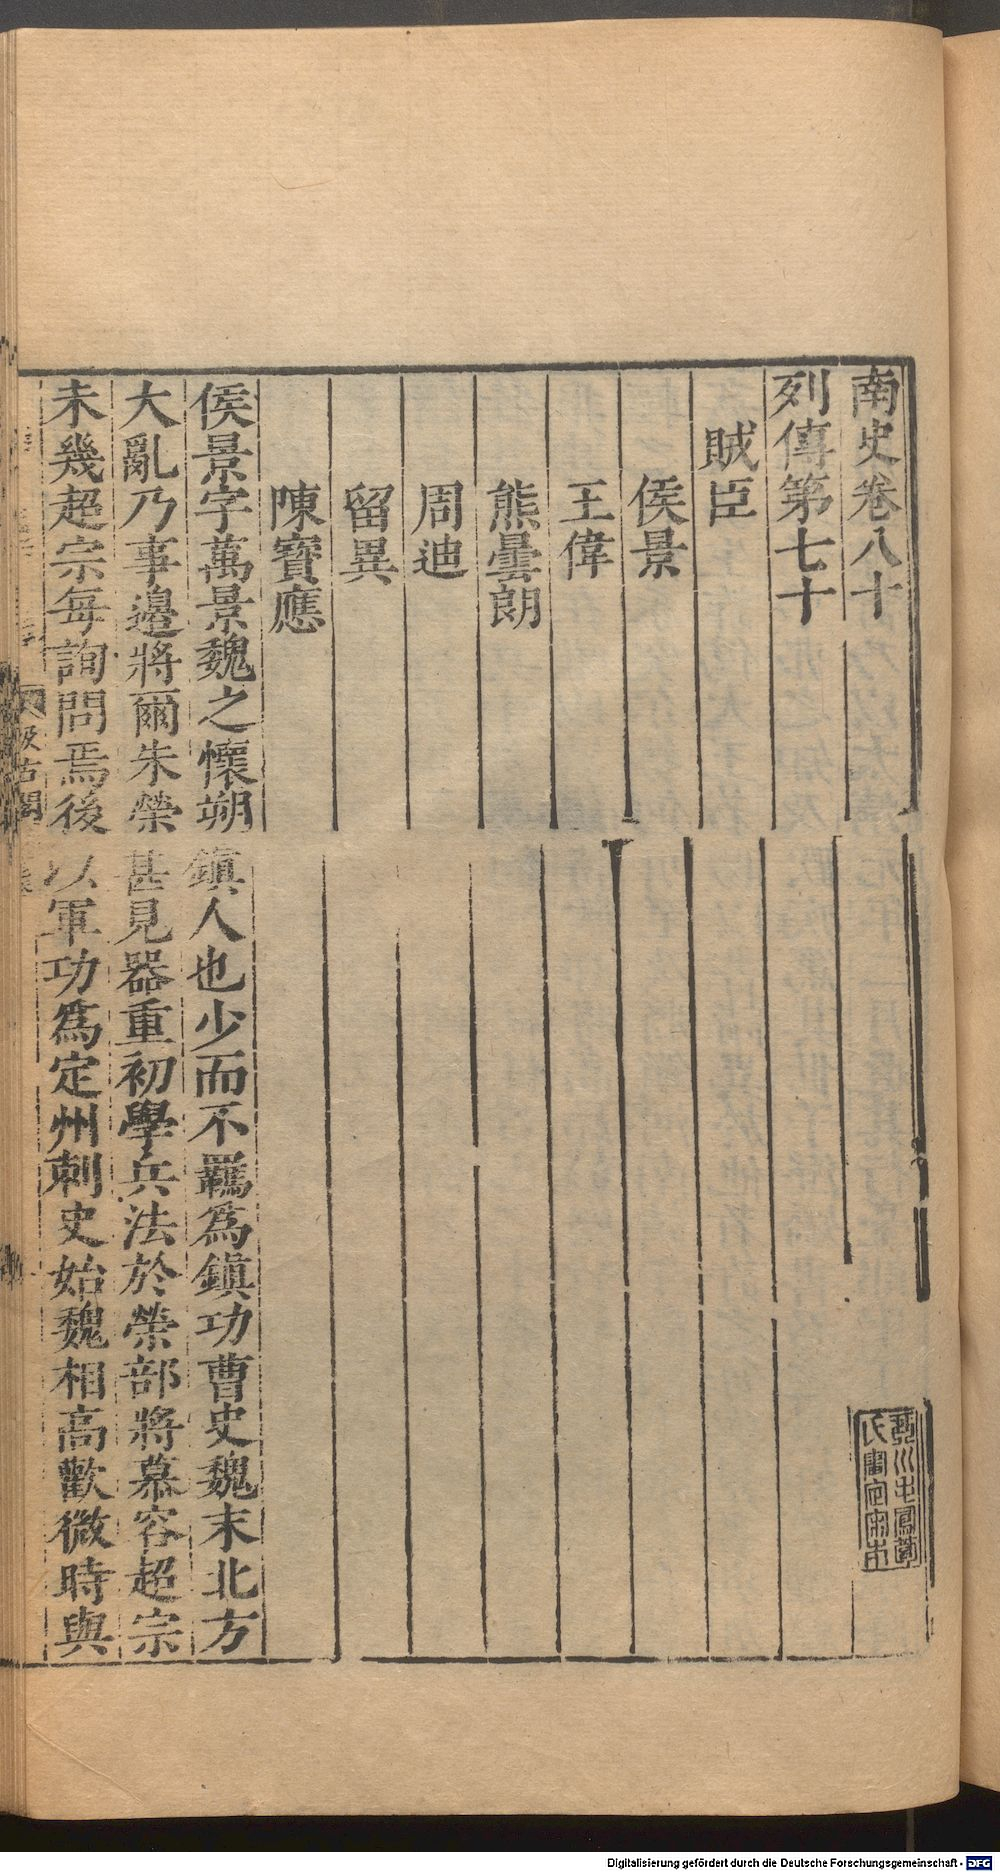 南史卷八十
列傳第七十
賊臣
侯景
王偉
熊曇朗
周迪
留異
陳寶應
侯景字萬景魏之懷朔鎮人也少而不羈爲鎮功曹史魏末北方
大亂乃事邊將爾朱榮甚見器重初學兵法於榮部將慕容超宗
未幾超宗每詢問焉後以軍功爲定州刺史始魏相高歡微時與
汲古閣
Digitalisierung gefördert durch die Deutsche Forschungsgemeinschaft - DFG